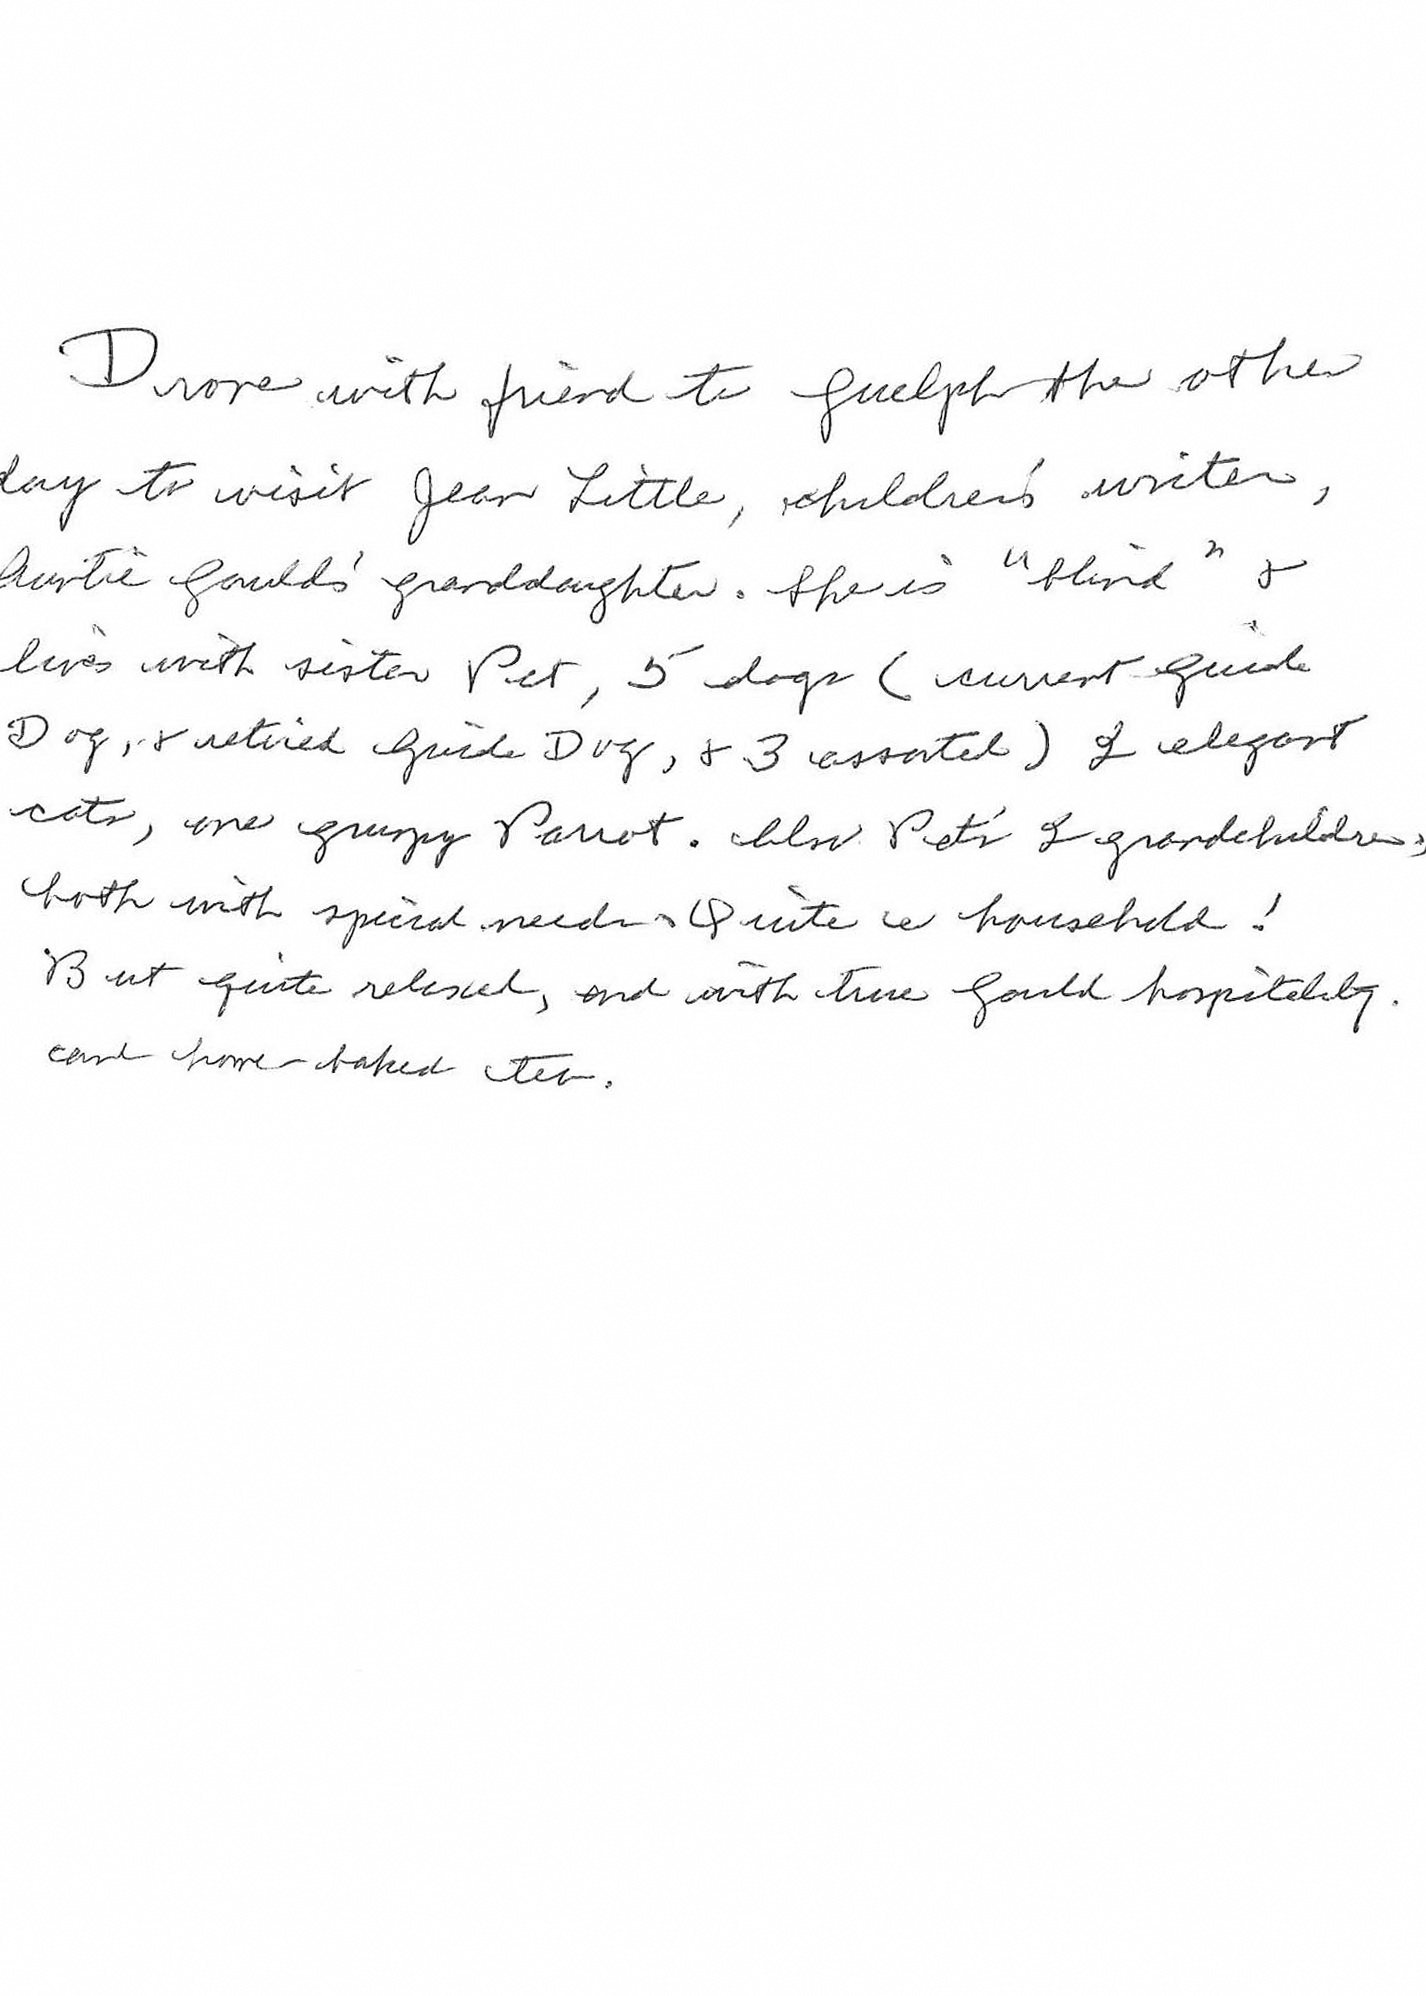 Drove with friend to Guelph the other
day to visit Jean Little, children's writer,
Auntie Gould's granddaughter. She is "blind" &
lives with sister Pat, 5 dogs (current Guide
Dog, & retired Guide Dog, & 3 assorted) 2 elegant
cats, one grumpy Parrot. Also Pat's 2 grandchildren,
both with special needs. Quite a household!
But quite relaxed, and with true Gould hospitality.
and home-baked tea.